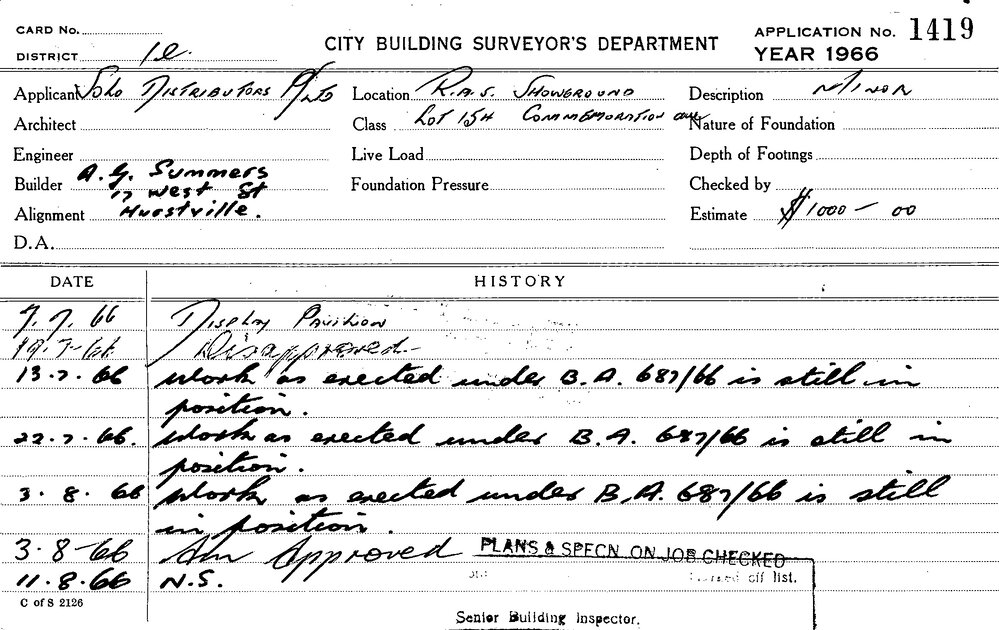 CARD No.
APPLICATION No. 1419
DISTRICT
CITY BUILDING SURVEYOR'S DEPARTMENT
YEAR 1966
Applicant Solo Distributors P/Ltd Location R.A.S. Showground Description Minor
Architect Class Lot 154 Commemoration ave Nature of Foundation
Engineer Live Load Depth of Footings
Builder A. G. Summers Foundation Pressure Checked by
17 West St
Alignment Hurstville. Estimate $1000-00
D.A.
DATE HISTORY
7.7.66 Display Pavilion
Disapproved
13.7.66 Work as erected under B.A. 687/66 is still in
position.
22.7.66. Work as erected under B.A. 687/66 is still in
position.
3.8.66 Work as erected under B.A. 687/66 is still
in position.
3-8-66 Approved PLANS & SPECN ON JOB CHECKED
11.8.66 N.S. off list.
C of S 2126
Senior Building Inspector.